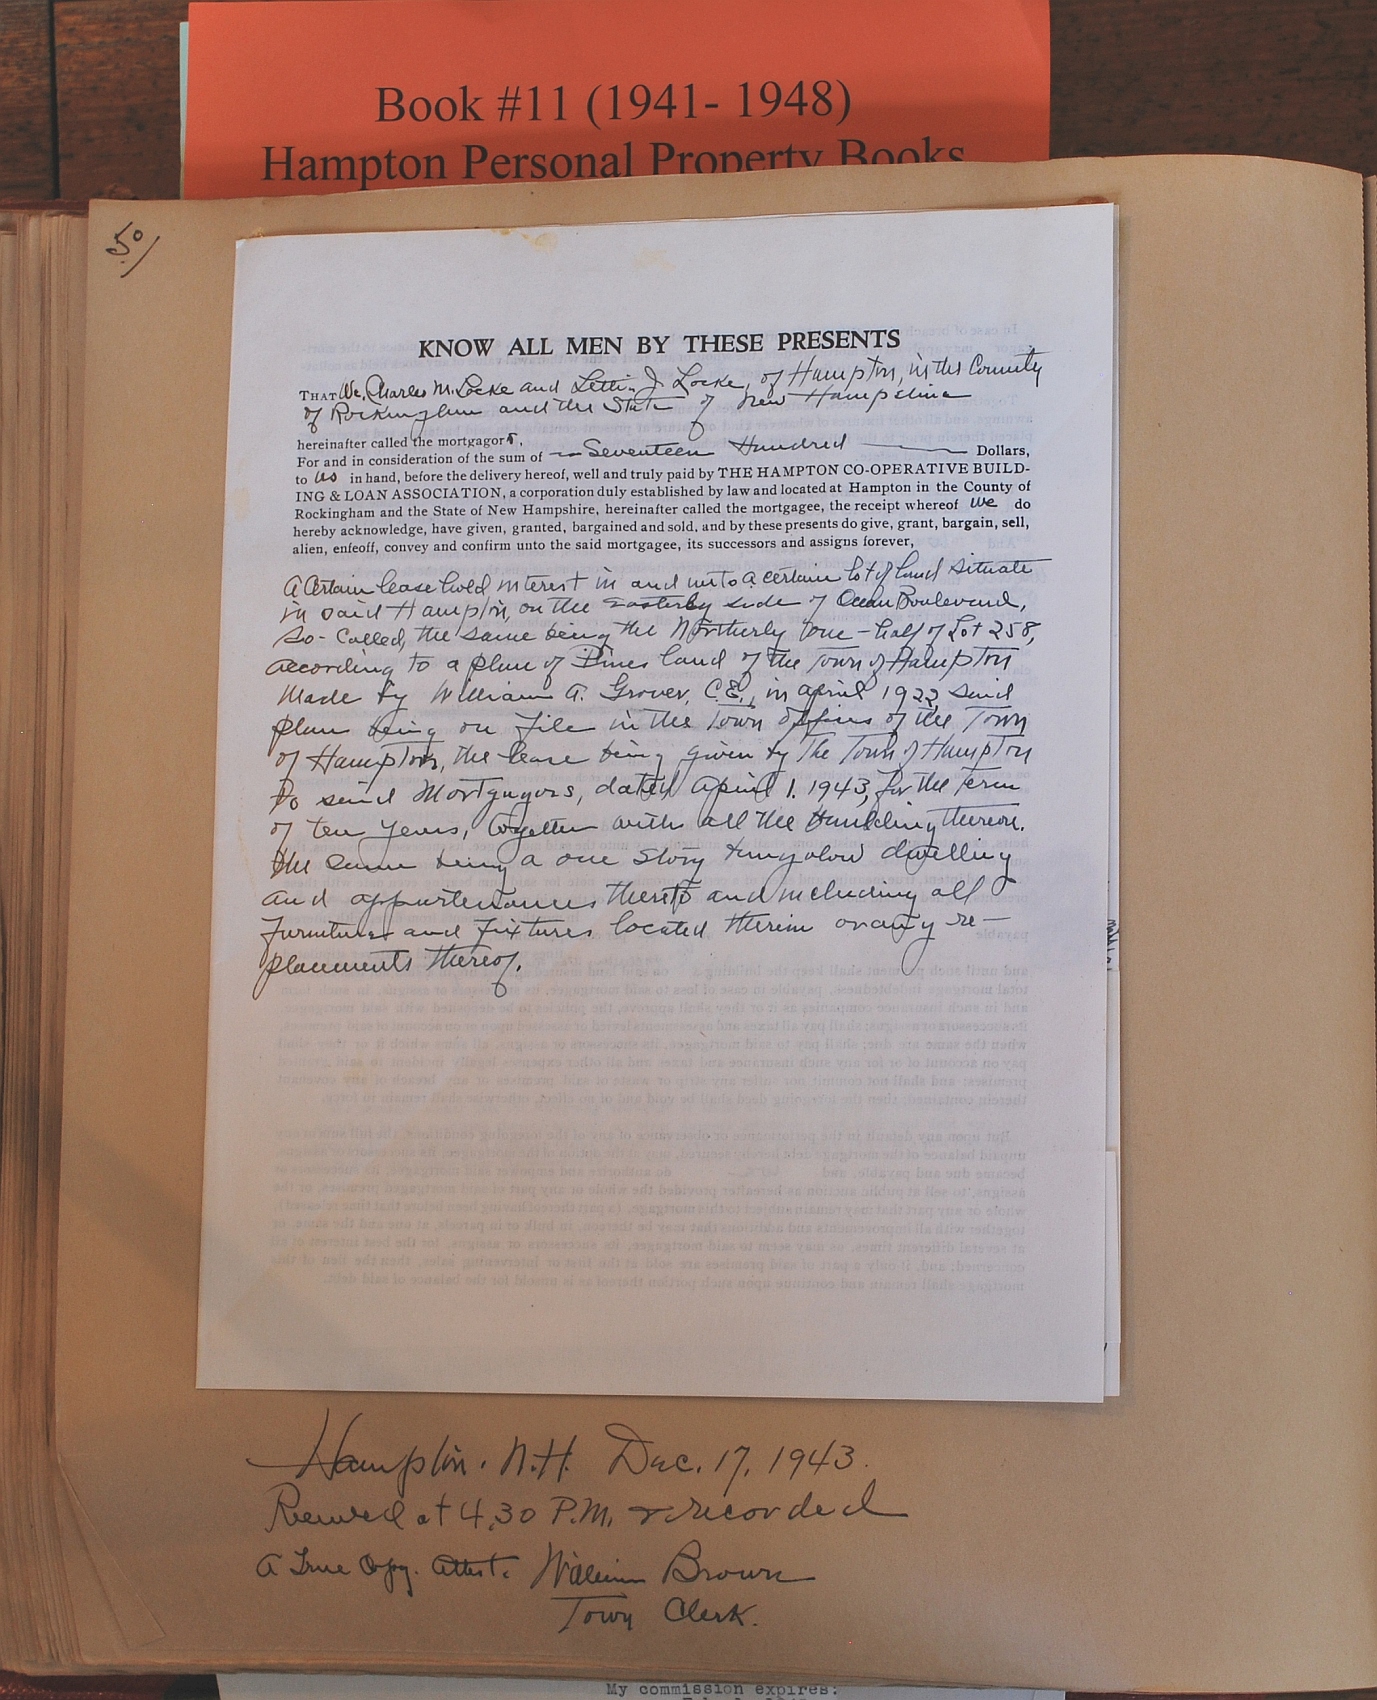 Book #11 (1941- 1948)
Hampton Personal Property Books
50/
KNOW ALL MEN BY THESE PRESENTS
THAT We, Charles M. Locke and J. Locke, of Hampton, in the County
of Rockingham and the State of New Hampshire
hereinafter called the mortgagors,
For and in consideration of the sum of — Seventeen Hundred — Dollars,
to us in hand, before the delivery hereof, well and truly paid by THE HAMPTON CO-OPERATIVE BUILD-
ING & LOAN ASSOCIATION, a corporation duly established by law and located at Hampton in the County of
Rockingham and the State of New Hampshire, hereinafter called the mortgagee, the receipt whereof we do
hereby acknowledge, have given, granted, bargained and sold, and by these presents do give, grant, bargain, sell,
alien, enfeoff, convey and confirm unto the said mortgagee, its successors and assigns forever,
A Certain lease hold interest in and unto a certain lot of land situate
in said Hampton, on the Easterly side of Ocean Boulevard,
so-called, the same being the Northerly one-half of Lot 258,
according to a plan of land of the Town of Hampton
made by William A. Grover, C.E., in April 1922, said
plan being on file in the Town Offices of the Town
of Hampton, the lease being given by The Town of Hampton
to said Mortgagors, dated April 1. 1943, for the term
of ten years, together with all the building thereon.
the same being a one story bungalow dwelling
and appurtenances thereto and including all
furniture and fixtures located therein or any re-
placements thereof.
Hampton. N.H. Dec. 17, 1943.
Received at 4,30 P.M. & recorded
A True Copy. Attest. William Brown
Town Clerk.
My commission expires: